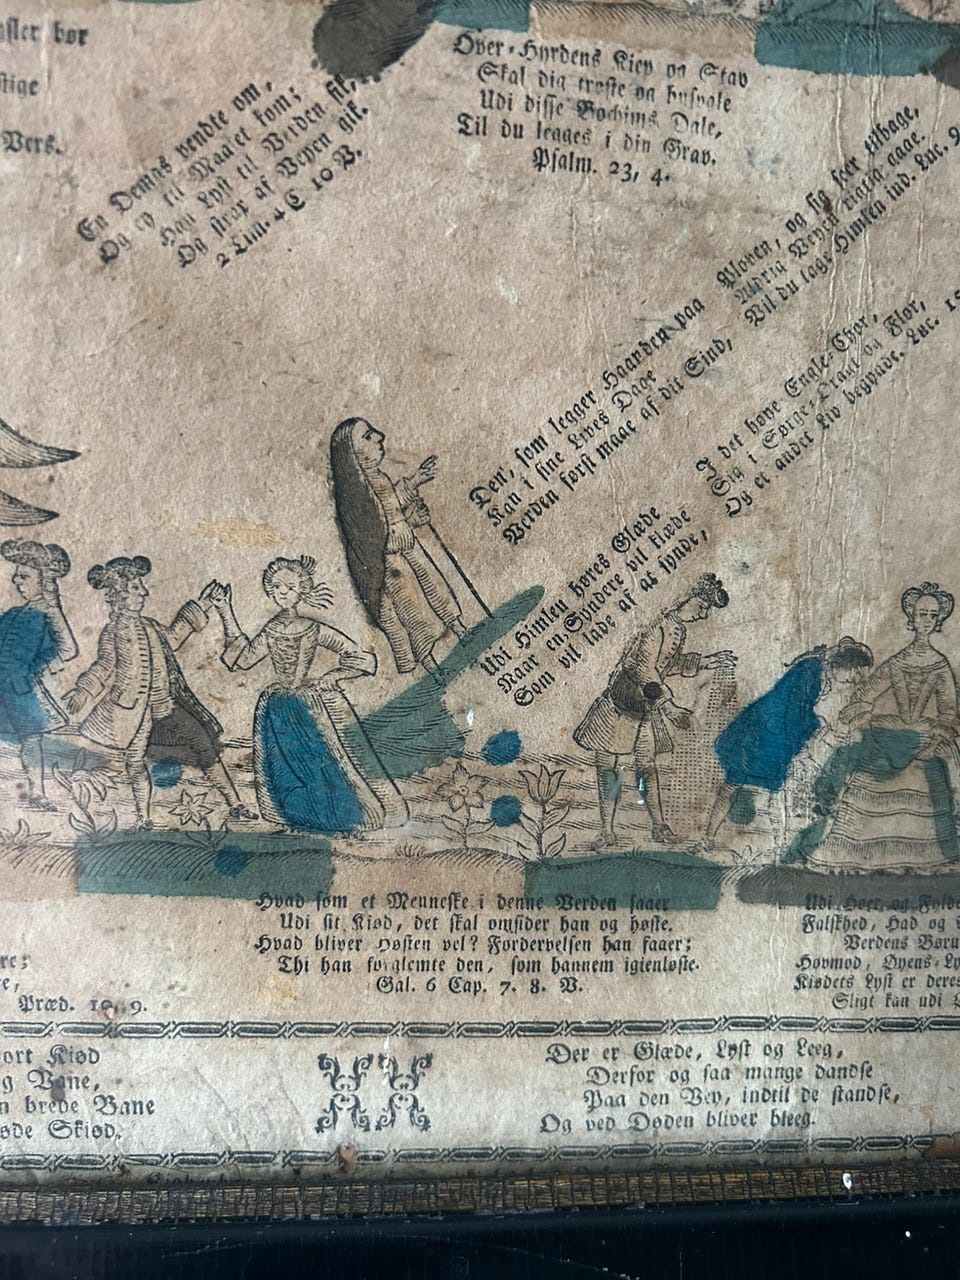 bør
stige
Vers.
En Demas vendte om,
Og ey til Maalet kom;
Han Lyst til Verden fik,
Og strax af Veyen gik.
2 Tim. 4 C 10 V.
Over-Hyrdens Kiep og Stav
Skal dig trøste og husvale
Udi disse Bochims Dale,
Til du legges i din Grav.
Psalm. 23, 4.
Den, som legger Haanden paa Ploven, og sig seer tilbage,
Kan i sine Lives Dage Aldrig Veyen rigtig gaae.
Verden først maae af dit Sind, Vil du tage Himlen ind. Luc. 9
Udi Himlen høres Glæde I det høye Engle-Chor,
Naar en Syndere vil klæde Sig i Sørge-Dragt og Flor,
Som vil lade af at synde, Og et andet Liv begynde. Luc. 15
Hvad som et Menneske i denne Verden saaer
Udi sit Kiød, det skal omsider han og høste.
Hvad bliver Høsten vel? Fordervelsen han faaer;
Thi han forglemte den, som hannem igienløste.
Gal. 6 Cap. 7. 8. V.
re;
re,
Præd. 9.
Udi Hoer, og Fylde
Falskhed, Had og
Verdens Børn
Hovmod, Øyens-Ly
Kiødets Lyst er deres
Sligt kan udi
ort Kiød
g Vane,
n brede Bane
søde Skiød.
Der er Glæde, Lyst og Leeg,
Derfor og saa mange dandse
Paa den Vey, indtil de standse,
Og ved Døden bliver bleeg.